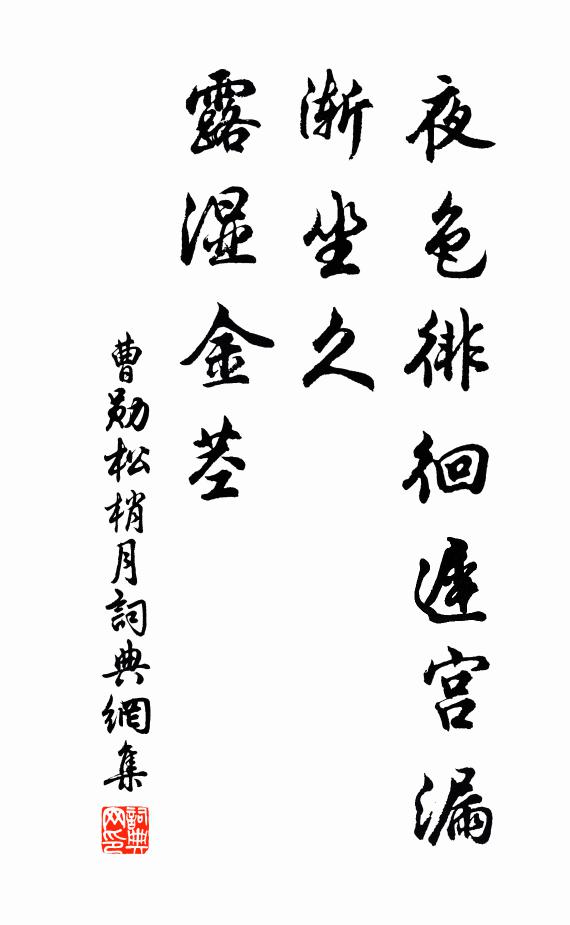 夜色徘徊遲宮漏
漸坐久
露濕金莖
曹勛松梢月詞典網集
詞典網印